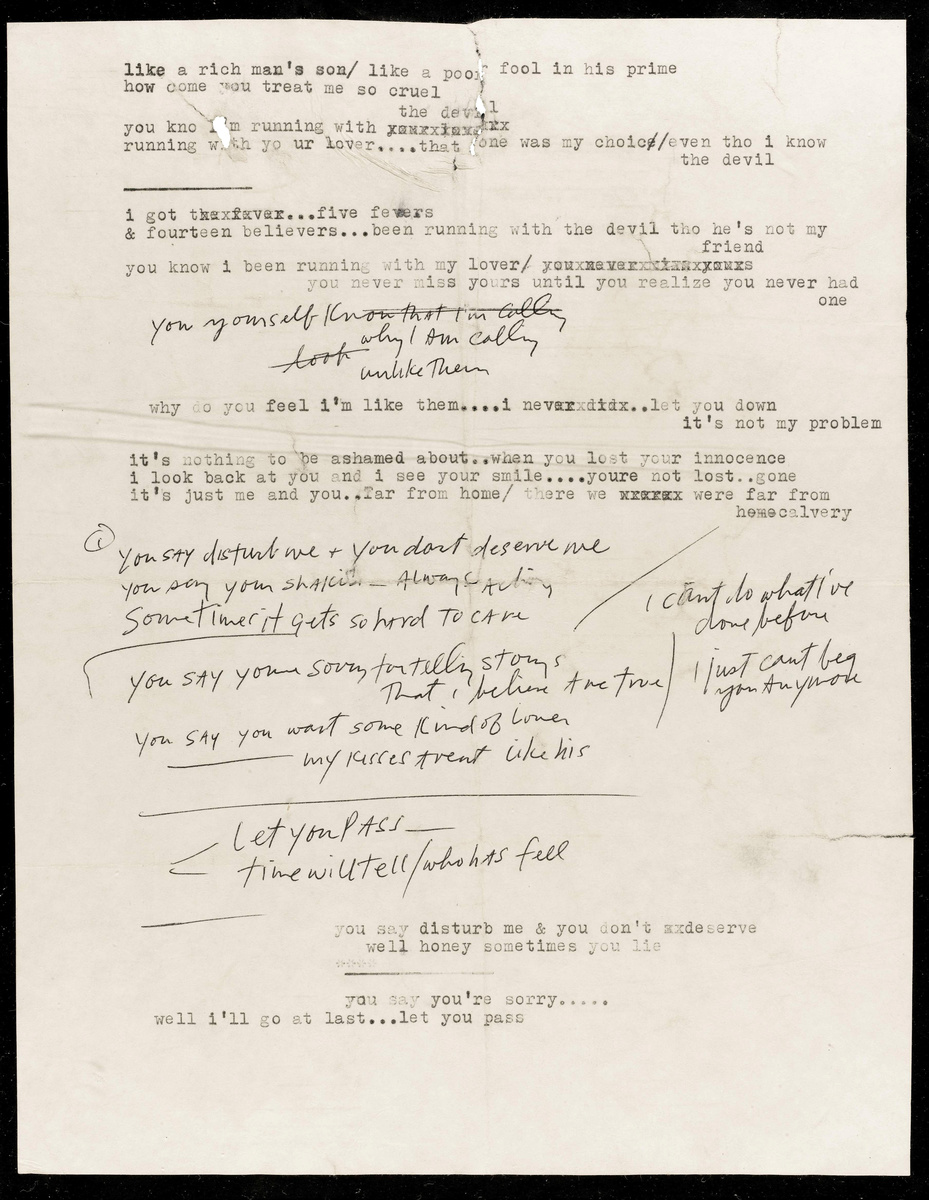 like a rich man's son/ like a poor fool in his prime
how come you treat me so cruel
the devil
you kno i'm running with
running with yo ur lover....that one was my choice//even tho i know
the devil
i got five fevers
& fourteen believers...been running with the devil tho he's not my
friend
you know i been running with my lover/ youxneverxxixxxyouxs
you never miss yours until you realize you never had
one
you yourself Know that I'm calling
why I Am calling
look
unlike Them
why do you feel i'm like them....i neverxdidx..let you down
it's not my problem
it's nothing to be ashamed about..when you lost your innocence
i look back at you and i see your smile....youre not lost..gone
it's just me and you..far from home/ there we xxxxxx were far from
homecalvery
① You SAY disturb me + you dont deserve me
You say your shakin — Always Acting
Sometimes it gets so hard To care
i can't do what i've
done before
You SAY youre sorry for telling storys
That i believe Are True
i just cant beg
you Anymore
You SAY you want some Kind of Lover
my kisses arent like his
Let you PASS —
time will tell/who has fell
you say disturb me & you don't xxdeserve
well honey sometimes you lie
you say you're sorry.....
well i'll go at last...let you pass